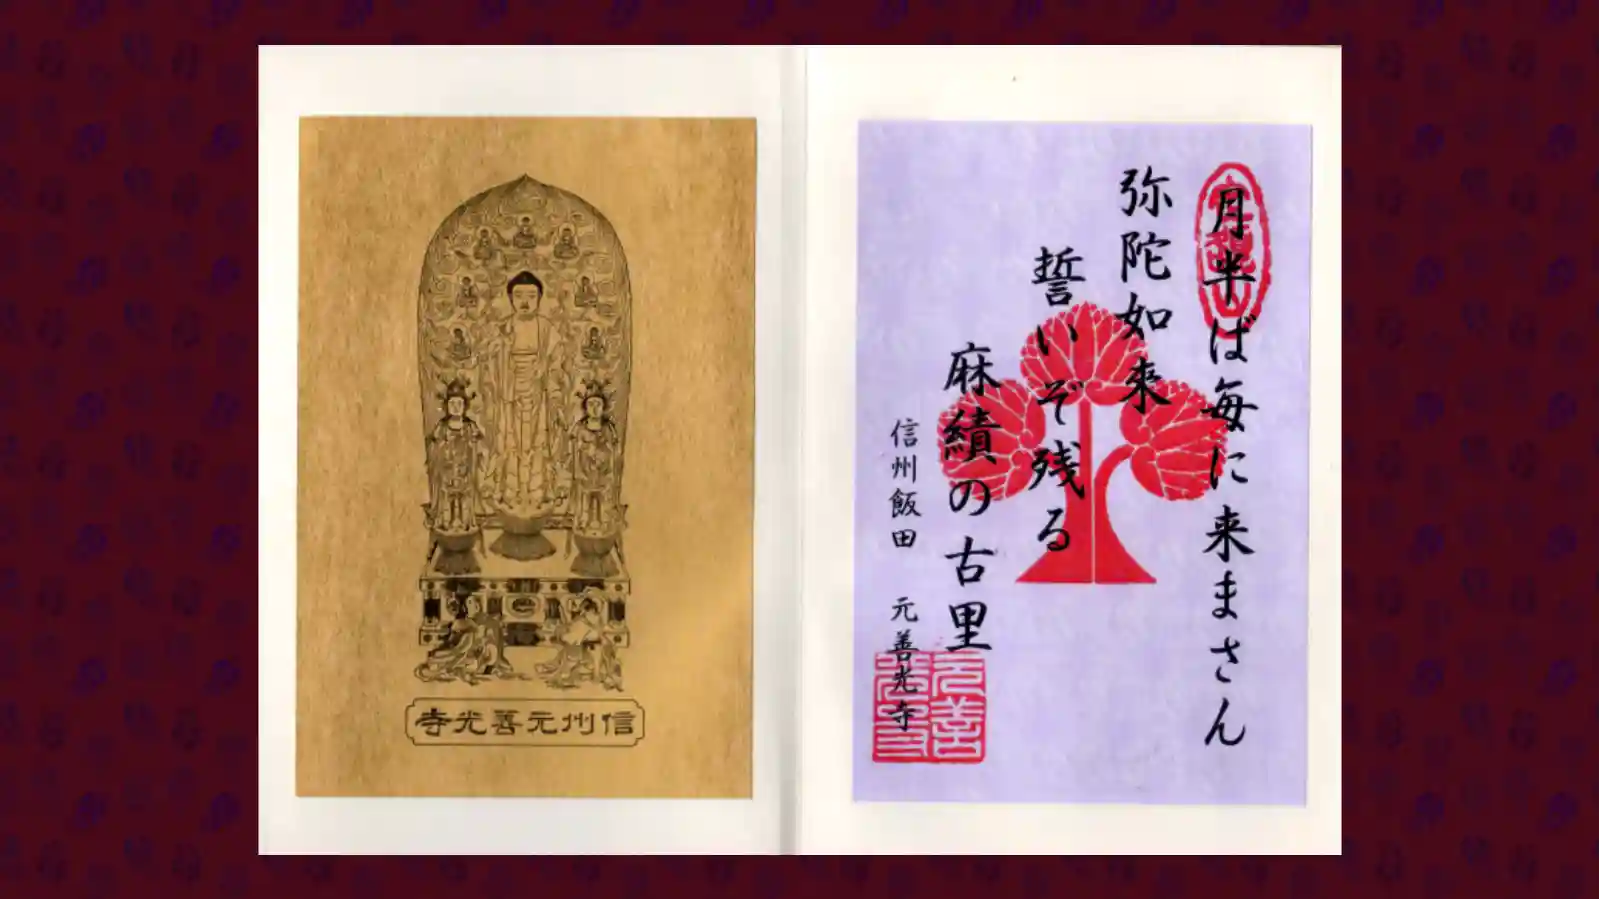 信州元善光寺
月半ば毎に来まさん
弥陀如來
誓いぞ残る
麻績の古里
信州飯田 元善光寺
元善光寺